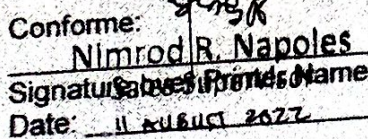 Conforme:
Nimrod R. Napoles
Signature over Printed Name
Date: 11 AUGUST 2022